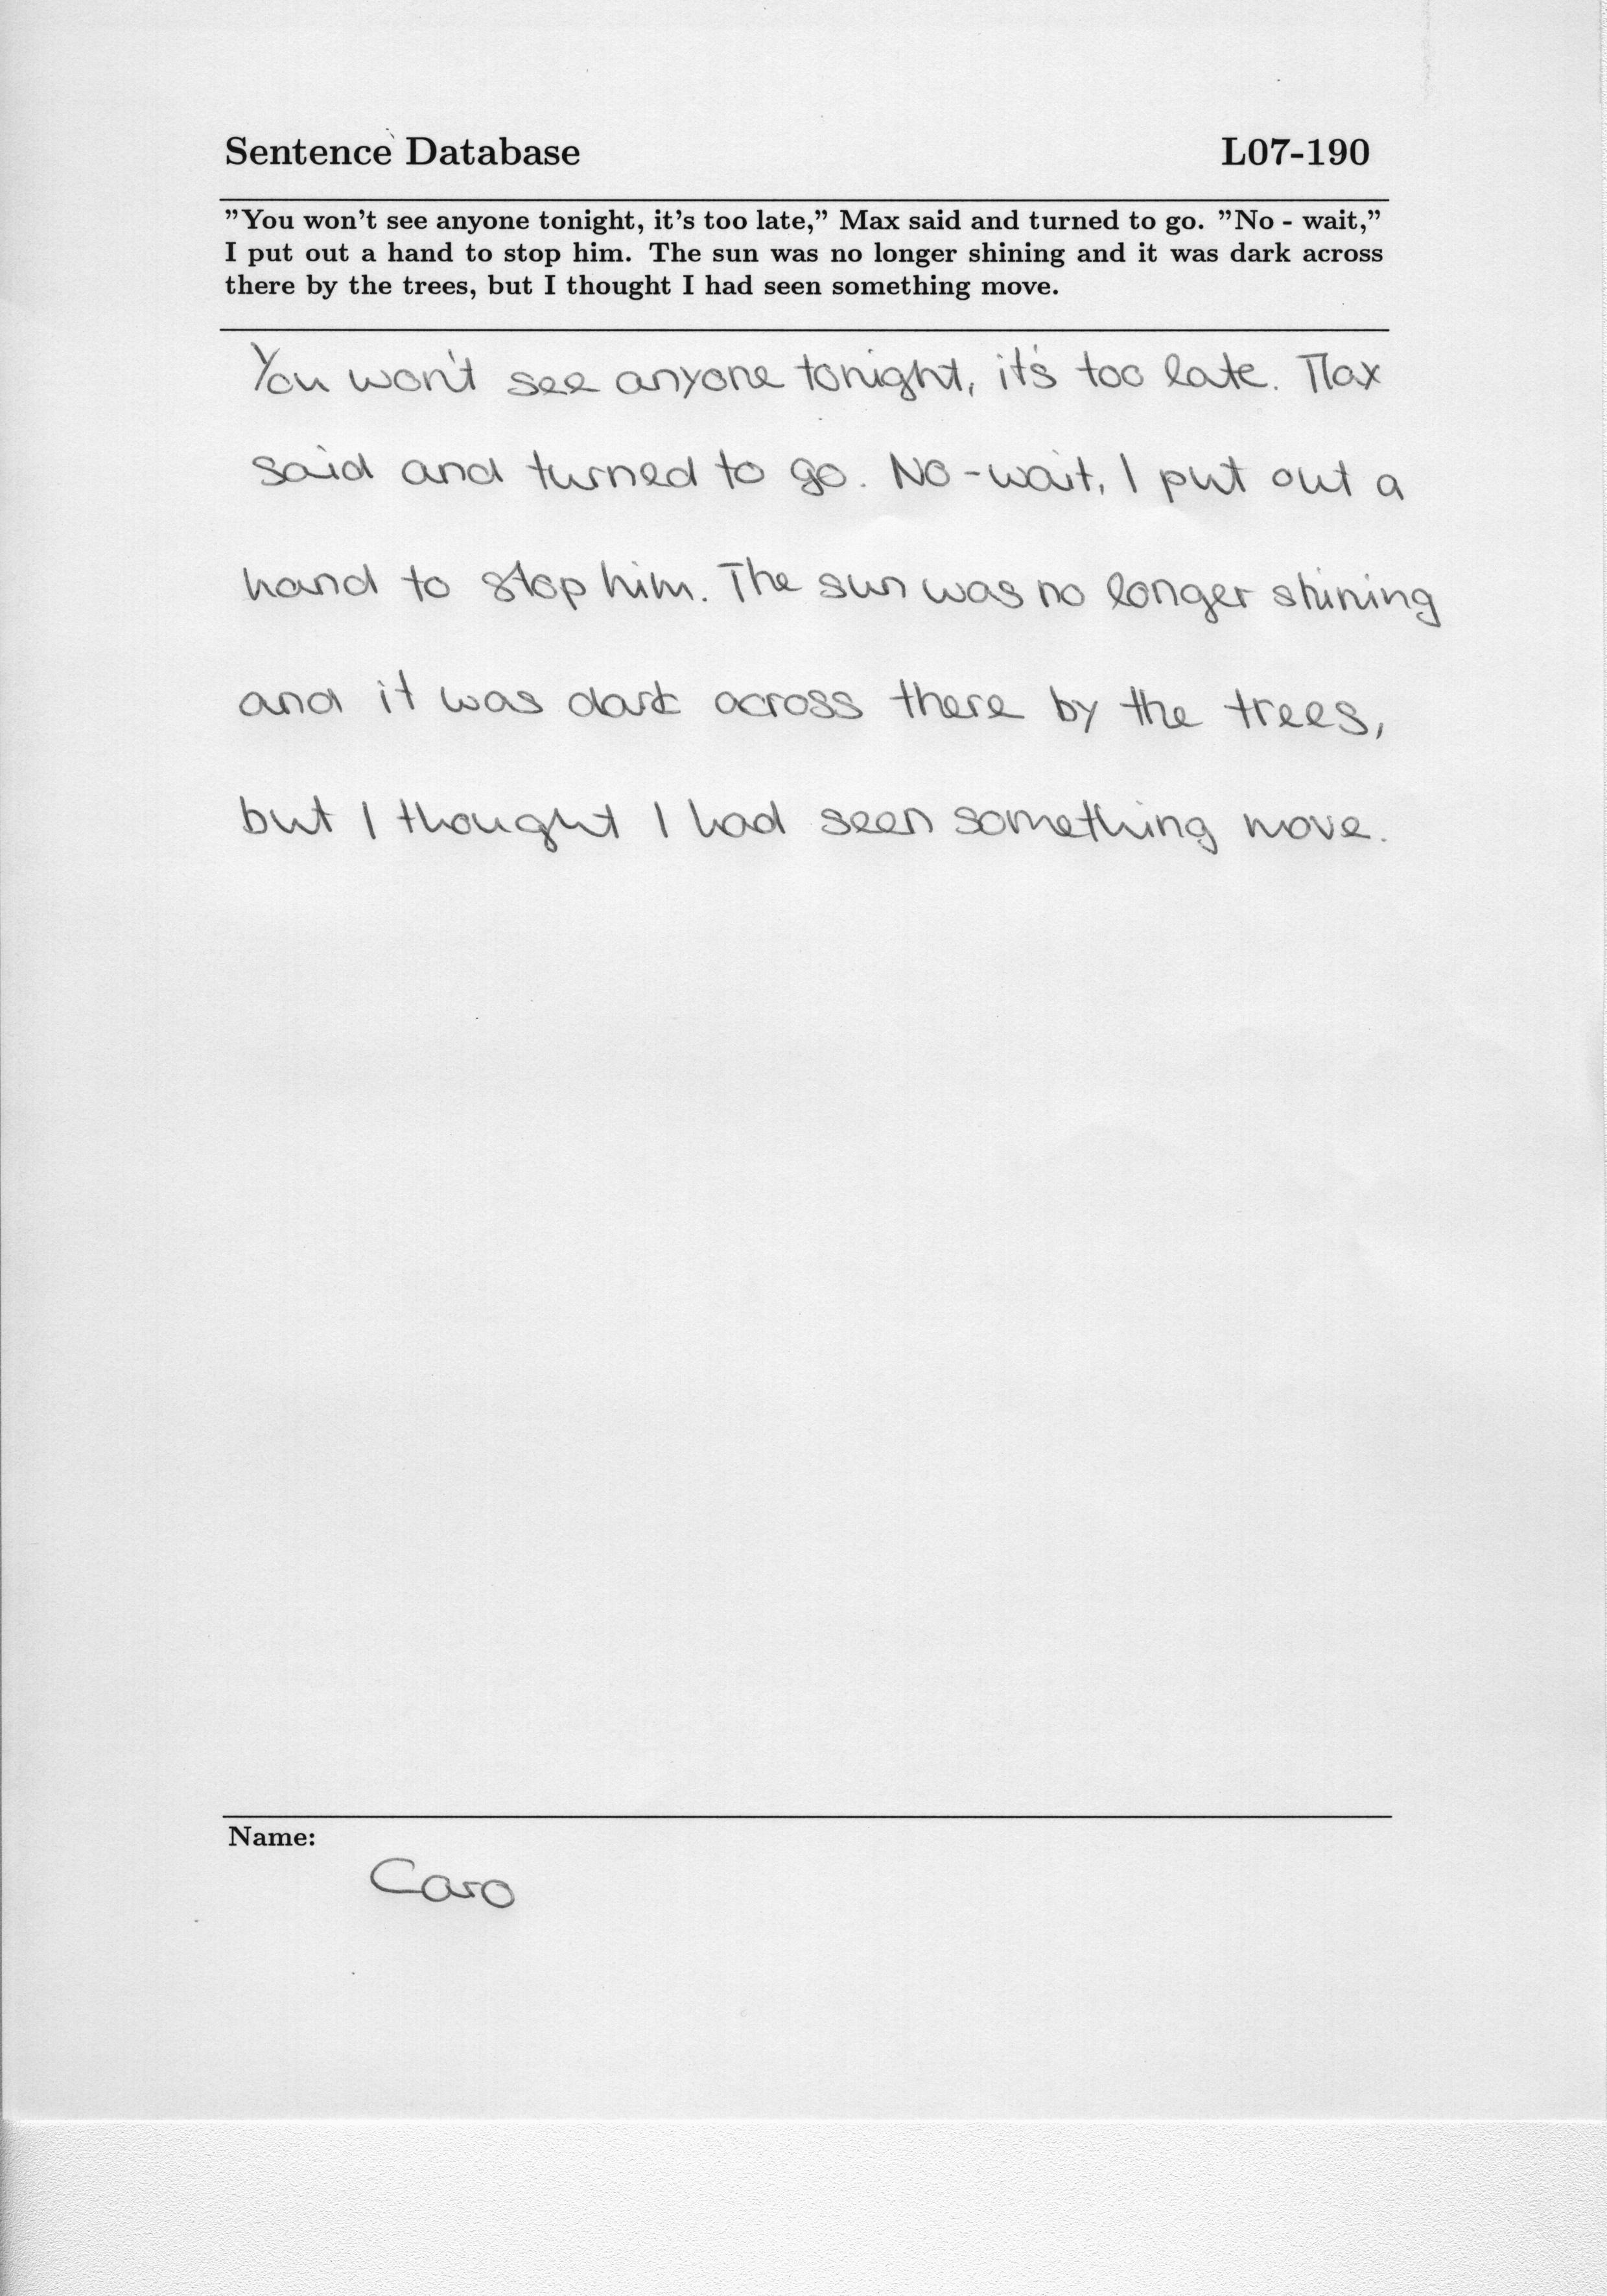 Sentence Database L07-190
"You won't see anyone tonight, it's too late," Max said and turned to go. "No - wait,"
I put out a hand to stop him. The sun was no longer shining and it was dark across
there by the trees, but I thought I had seen something move.
You won't see anyone tonight, it's too late. Max
said and turned to go. No - wait, I put out a
hand to stop him. The sun was no longer shining
and it was dark across there by the trees,
but I thought I had seen something move.
Name:
Caro